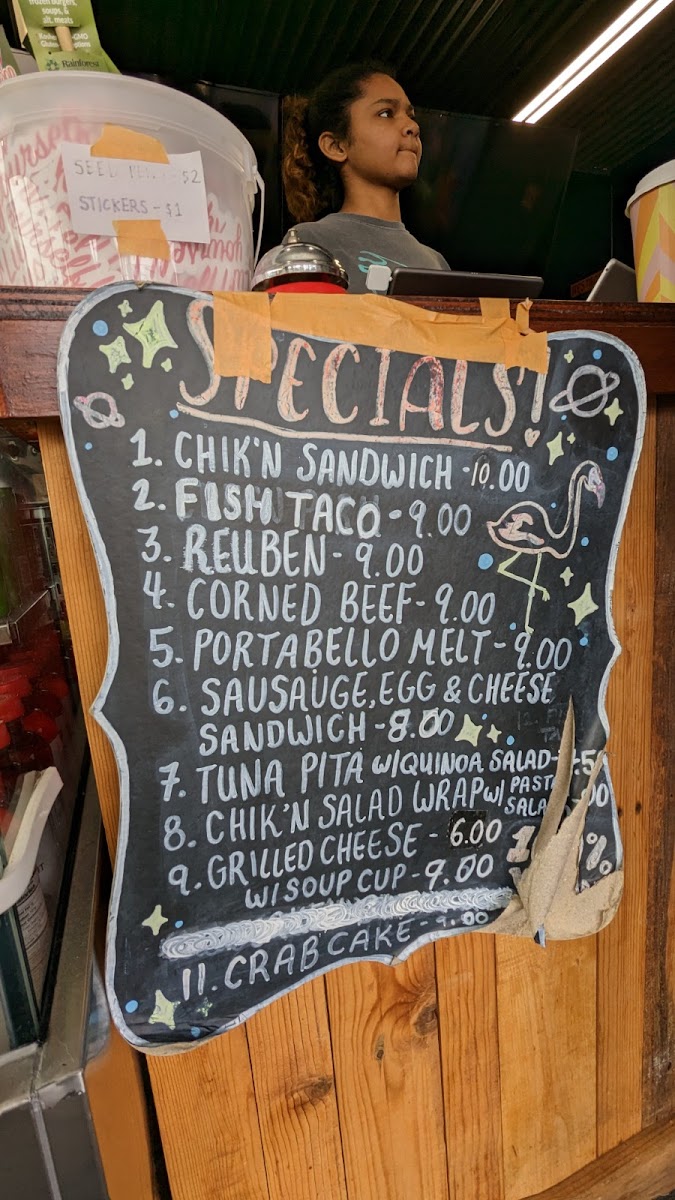 frozen burgers,
soups, &
alt. meats
Rainforest
STICKERS - $1
SPECIALS!
1. CHIK'N SANDWICH - 10.00
2. FISH TACO - 9.00
3. REUBEN - 9.00
4. CORNED BEEF - 9.00
5. PORTABELLO MELT - 9.00
6. SAUSAUGE, EGG & CHEESE
SANDWICH - 8.00
7. TUNA PITA W/QUINOA SALAD -
8. CHIK'N SALAD WRAP W/
9. GRILLED CHEESE - 6.00
W/ SOUP CUP - 9.00
11. CRABCAKE - 9.00